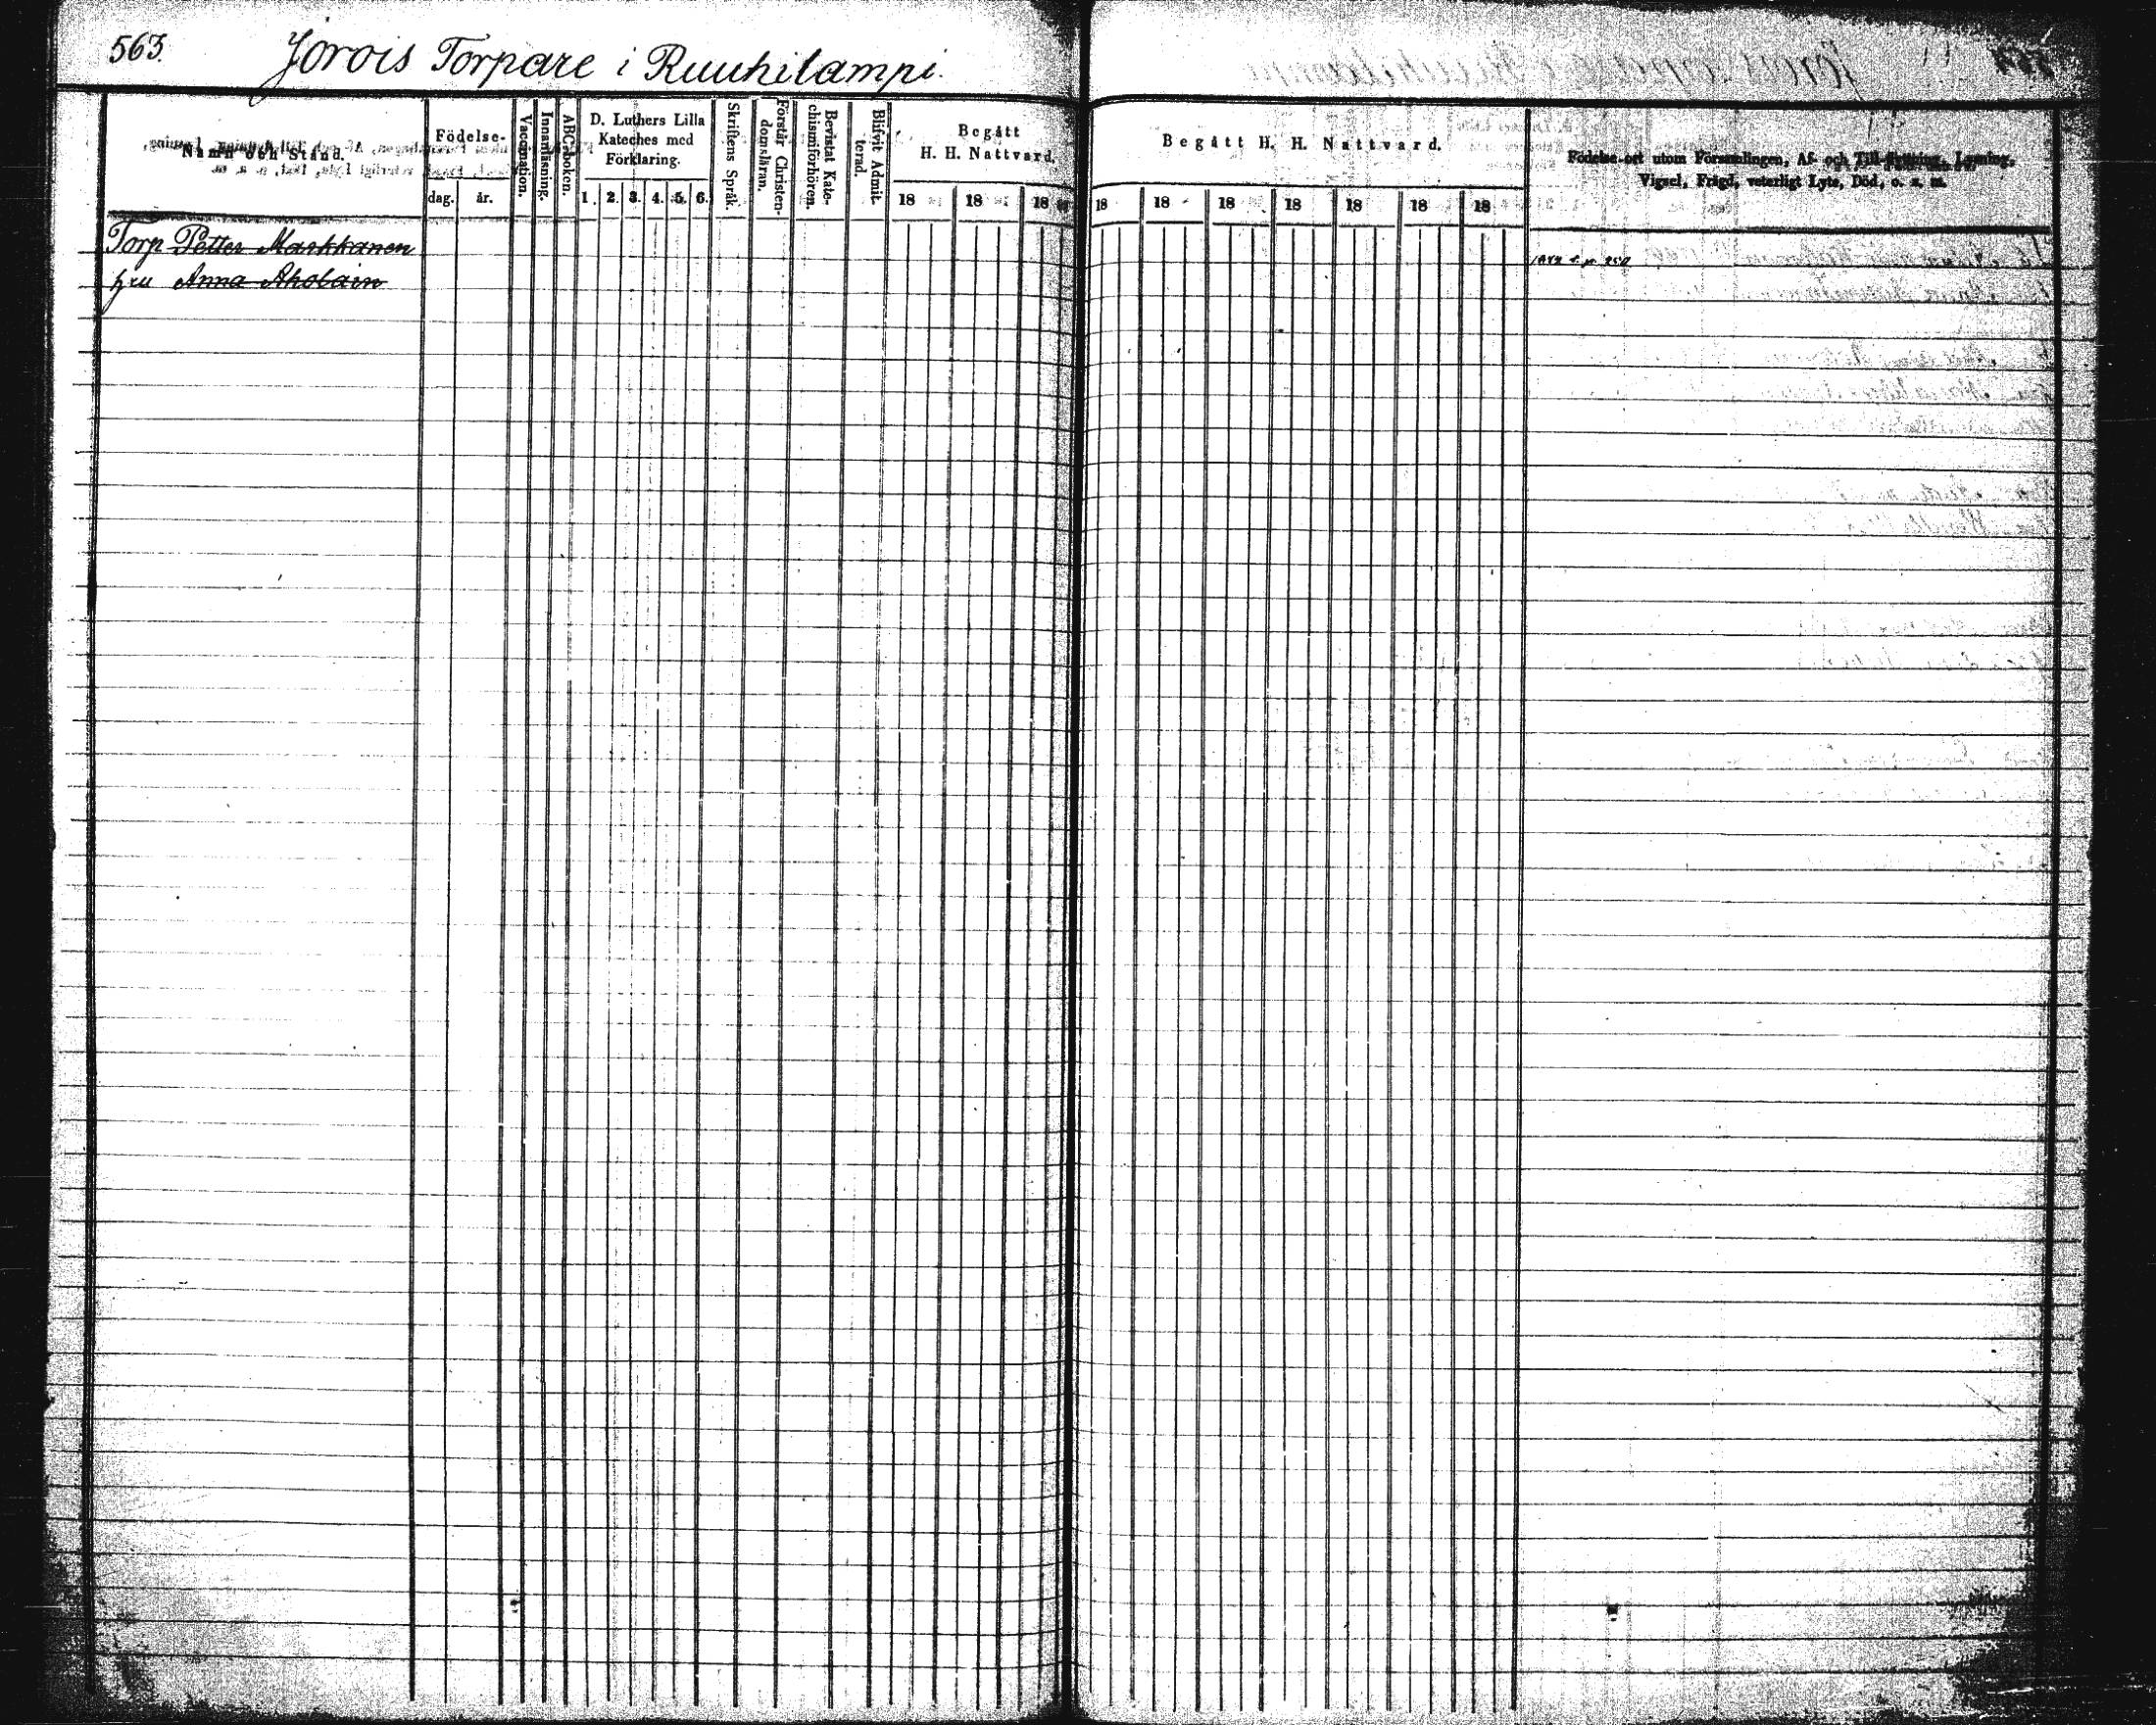 563.
Jorois Torpare i Ruuhilampi.
Namn och Stånd.
Födelse-
dag.
år.
Vaccination.
Innanläsning.
ABC-boken.
D. Luthers Lilla
Kateches med
Förklaring.
1. 2. 3. 4. 5. 6.
Skriftens Språk.
Förstår Christen-
domsläran.
Bevistat Kate-
chismiförhören.
Blifvit Admit-
terad.
Begått
H. H. Nattvard.
18 18 18
Begått H. H. Nattvard.
18 18 18 18 18 18 18
Födelse-ort utom Församlingen, Af- och Till-flyttning, Lysning,
Vigsel, Frägd, veterligt Lyte, Död, o. s. m.
Torp Petter Markkanen
hru Anna Aholain